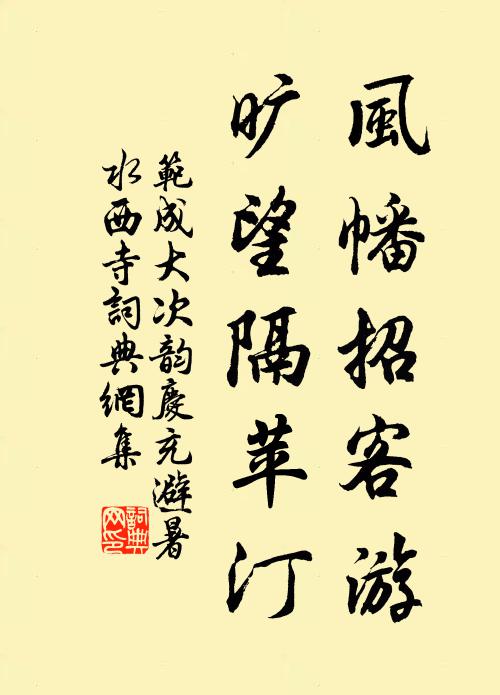 風幡招客游
旷望隔苹汀
範成大次韵慶充避暑
水西寺詞典網集
詞典网印